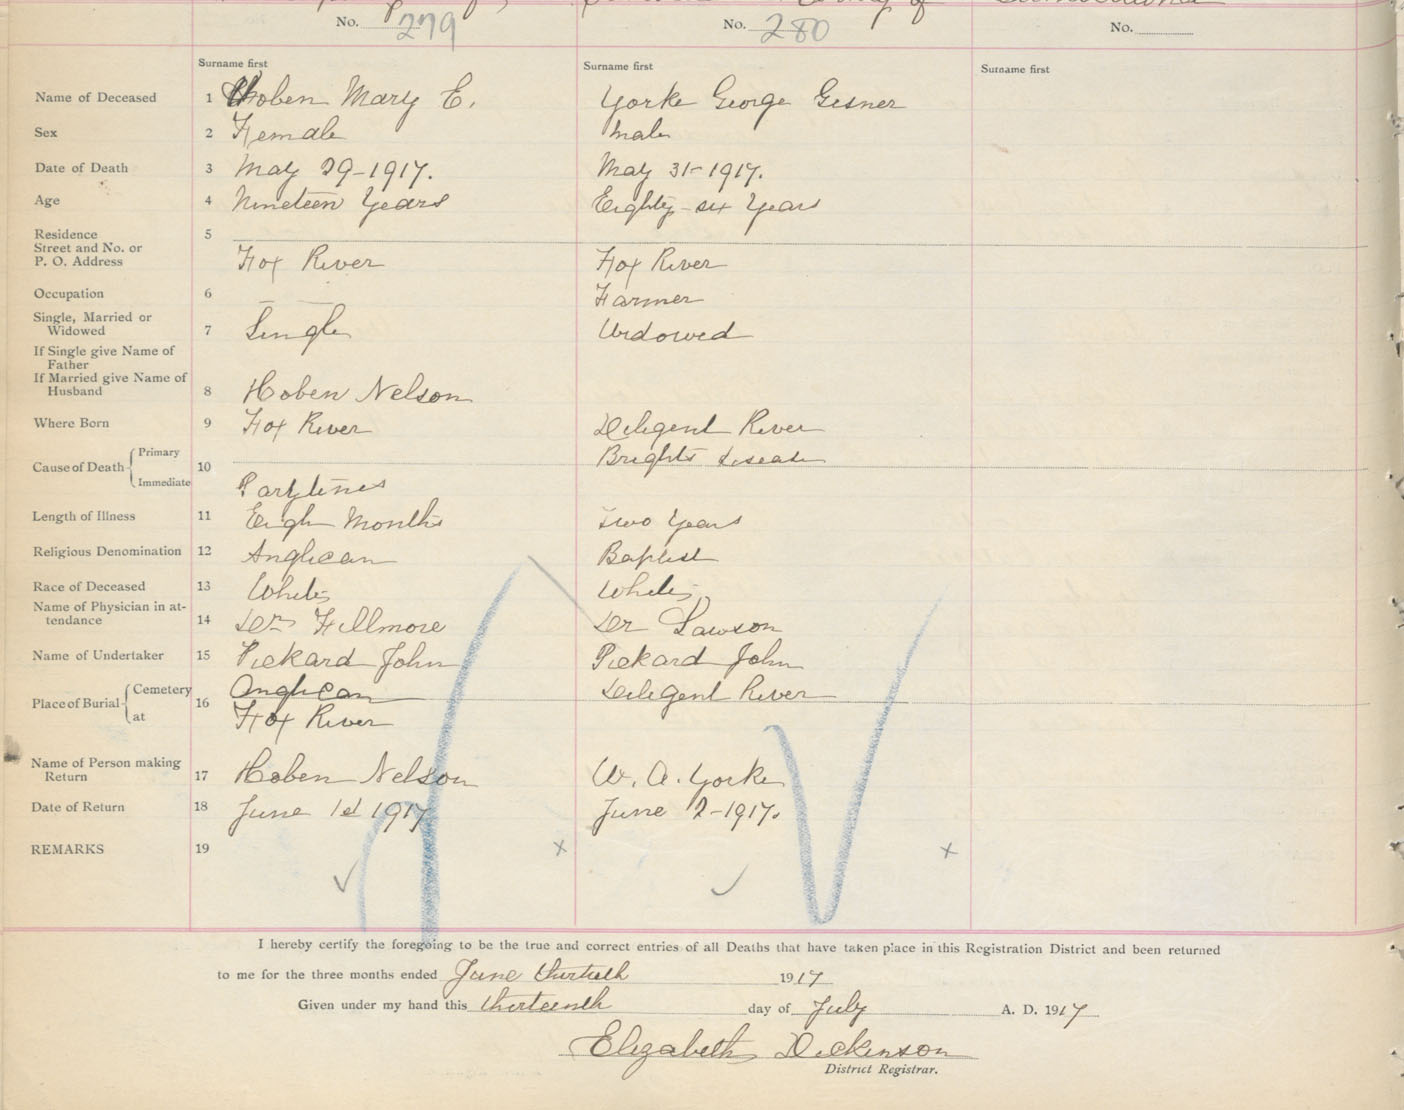 No. 279 No. 280 No.
Surname first Surname first Surname first
Name of Deceased 1 Hoben Mary E. Yorke George Gesner
Sex 2 Female Male
Date of Death 3 May 29-1917. May 31-1917.
Age 4 Nineteen Years Eighty-six Years
Residence 5
Street and No. or
P. O. Address Fox River Fox River
Occupation 6 Farmer
Single, Married or
Widowed 7 Single Widowed
If Single give Name of
Father
If Married give Name of
Husband 8 Hoben Nelson
Where Born 9 Fox River Diligent River
Cause of Death 10 Primary Brights disease
Immediate
Length of Illness 11 Eigh Months Two Years
Religious Denomination 12 Anglican Baptist
Race of Deceased 13 White White
Name of Physician in at-
tendance 14 Dr Fillmore Dr Lawson
Name of Undertaker 15 Pickard John Pickard John
Place of Burial 16 Cemetery Anglican Diligent River
at Fox River
Name of Person making
Return 17 Hoben Nelson W. A. Yorke
Date of Return 18 June 1st 1917 June 2-1917.
REMARKS 19
I hereby certify the foregoing to be the true and correct entries of all Deaths that have taken place in this Registration District and been returned
to me for the three months ended June thirtieth 1917
Given under my hand this thirteenth day of July A. D. 1917
Elizabeth Dickinson
District Registrar.